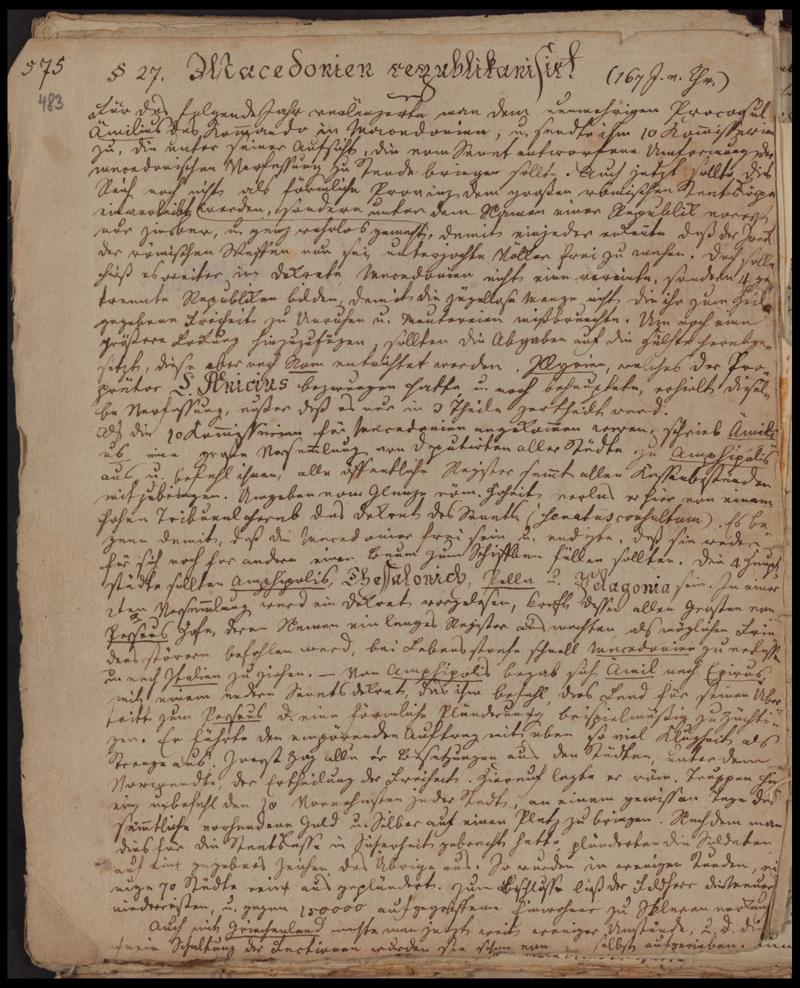 575
483
§ 27. Macedonien republikanisirt (167 J. v. Chr.)
Für das folgende Jahr verlängerte man dem nunmehrigen Proconsul
Ämilius das Kommando in Macedonien, u. sandte ihm 10 Kommissarien
zu, die unter seiner Aufsicht, die vom Senat entworfene Umformung der
macedonischen Verfassung zu Stande bringen sollte. Auch jetzt sollte dies
Reich noch nicht als förmliche Provinz dem großen römischen Staatskörper
einverleibt werden, sondern unter dem Namen einer Republik vorerst
nur zinsbar, u. ganz wehrlos gemacht, damit einjeder erkäute daß der Zwek
der römischen Waffen nur sei, unterjochte Völker frei zu machen. Doch solle
hieß es weiter im Dekrete Macedonien nicht eine vereinte, sondern 4 ge
trennte Republiken bilden, damit die zügellose Menge nicht die ihr zum Heil
gegebene Freiheit zu Unruhen u. Meutereien mißbrauchte. Um noch eine
größere Lokung hinzuzufügen, sollten die Abgaben auf die Hälfte herabge-
setzt, diese aber nach Rom entrichtet werden. Illyrien, welches der Pro-
prätor L. Anicius bezwungen hatte u. noch behauptete, erhielt diesel-
be Verfassung, außer daß es nur in 3 Theile zertheilt ward.
Als die 10 Kommissarien für Macedonien angekommen waren, schrieb Ämili
us eine große Versammlung von Deputirten aller Städte zu Amphipolis
aus u. befahl ihnen, alle öffentliche Register sammt allen Kassenbeständen
mitzubringen. Umgeben vom Glanze röm. Hoheit verlas er hier von einem
hohen Tribunal herab das Dekret des Senats (senatus consultum). Es be
gann damit, daß die Macedonier frei sein u. daß sie weder
für sich noch für andere einen Baum zum Schiffbau fällen sollten. Die 4 Haupt
städte sollten Amphipolis, Thessalonich, Pella u. Pelagonia sein. In einer
2ten Versammlung ward ein Dekret vorgelesen, kraft dessen allen Großen von
Perseus Hofe, deren Namen ein langes Register ausmachten, als möglichen Frie
densstörern befohlen ward, bei Lebensstrafe schnell Macedonien zu verlassen
u. nach Italien zu ziehen. — Von Amphipolis begab sich Ämil nach Epirus
mit einem andern Senatsdekret, das ihm befahl, dies Land für seinen Über
tritt zum Perseus d. eine förmliche Plünderung beispielmäßig zu züchti-
gen. Er führte den empörenden Auftrag mit eben so viel Klugheit als
Strenge aus. Zuerst zog alle Besatzungen aus den Städten, unter dem
Vorwande, der Ertheilung der Freiheit. Hierauf legte er röm. Truppen hin
ein, u. befahl den 10 Vornehmsten jeder Stadt, an einem gewissen Tage das
sämmtliche vorhandene Gold u. Silber auf einen Platz zu bringen. Nachdem man
dies für die Staatskasse in Sicherheit gebracht hatte, plünderten die Soldaten
auf ein gegebenes Zeichen das Übrige aus. So wurden in wenigen Stunden, ei
nige 70 Städte rein ausgeplündert. Zum Beschlusse ließ der Feldherr die Mauern
niederreißen, u. gegen 150000 aufgegriffene Einwohner zu Sklaven verkaufen
Auch mit Griechenland machte man jetzt weit weniger Umstände, u. d. die
Schaltung der Factionen wurden sie schon von selbst aufgerieben.